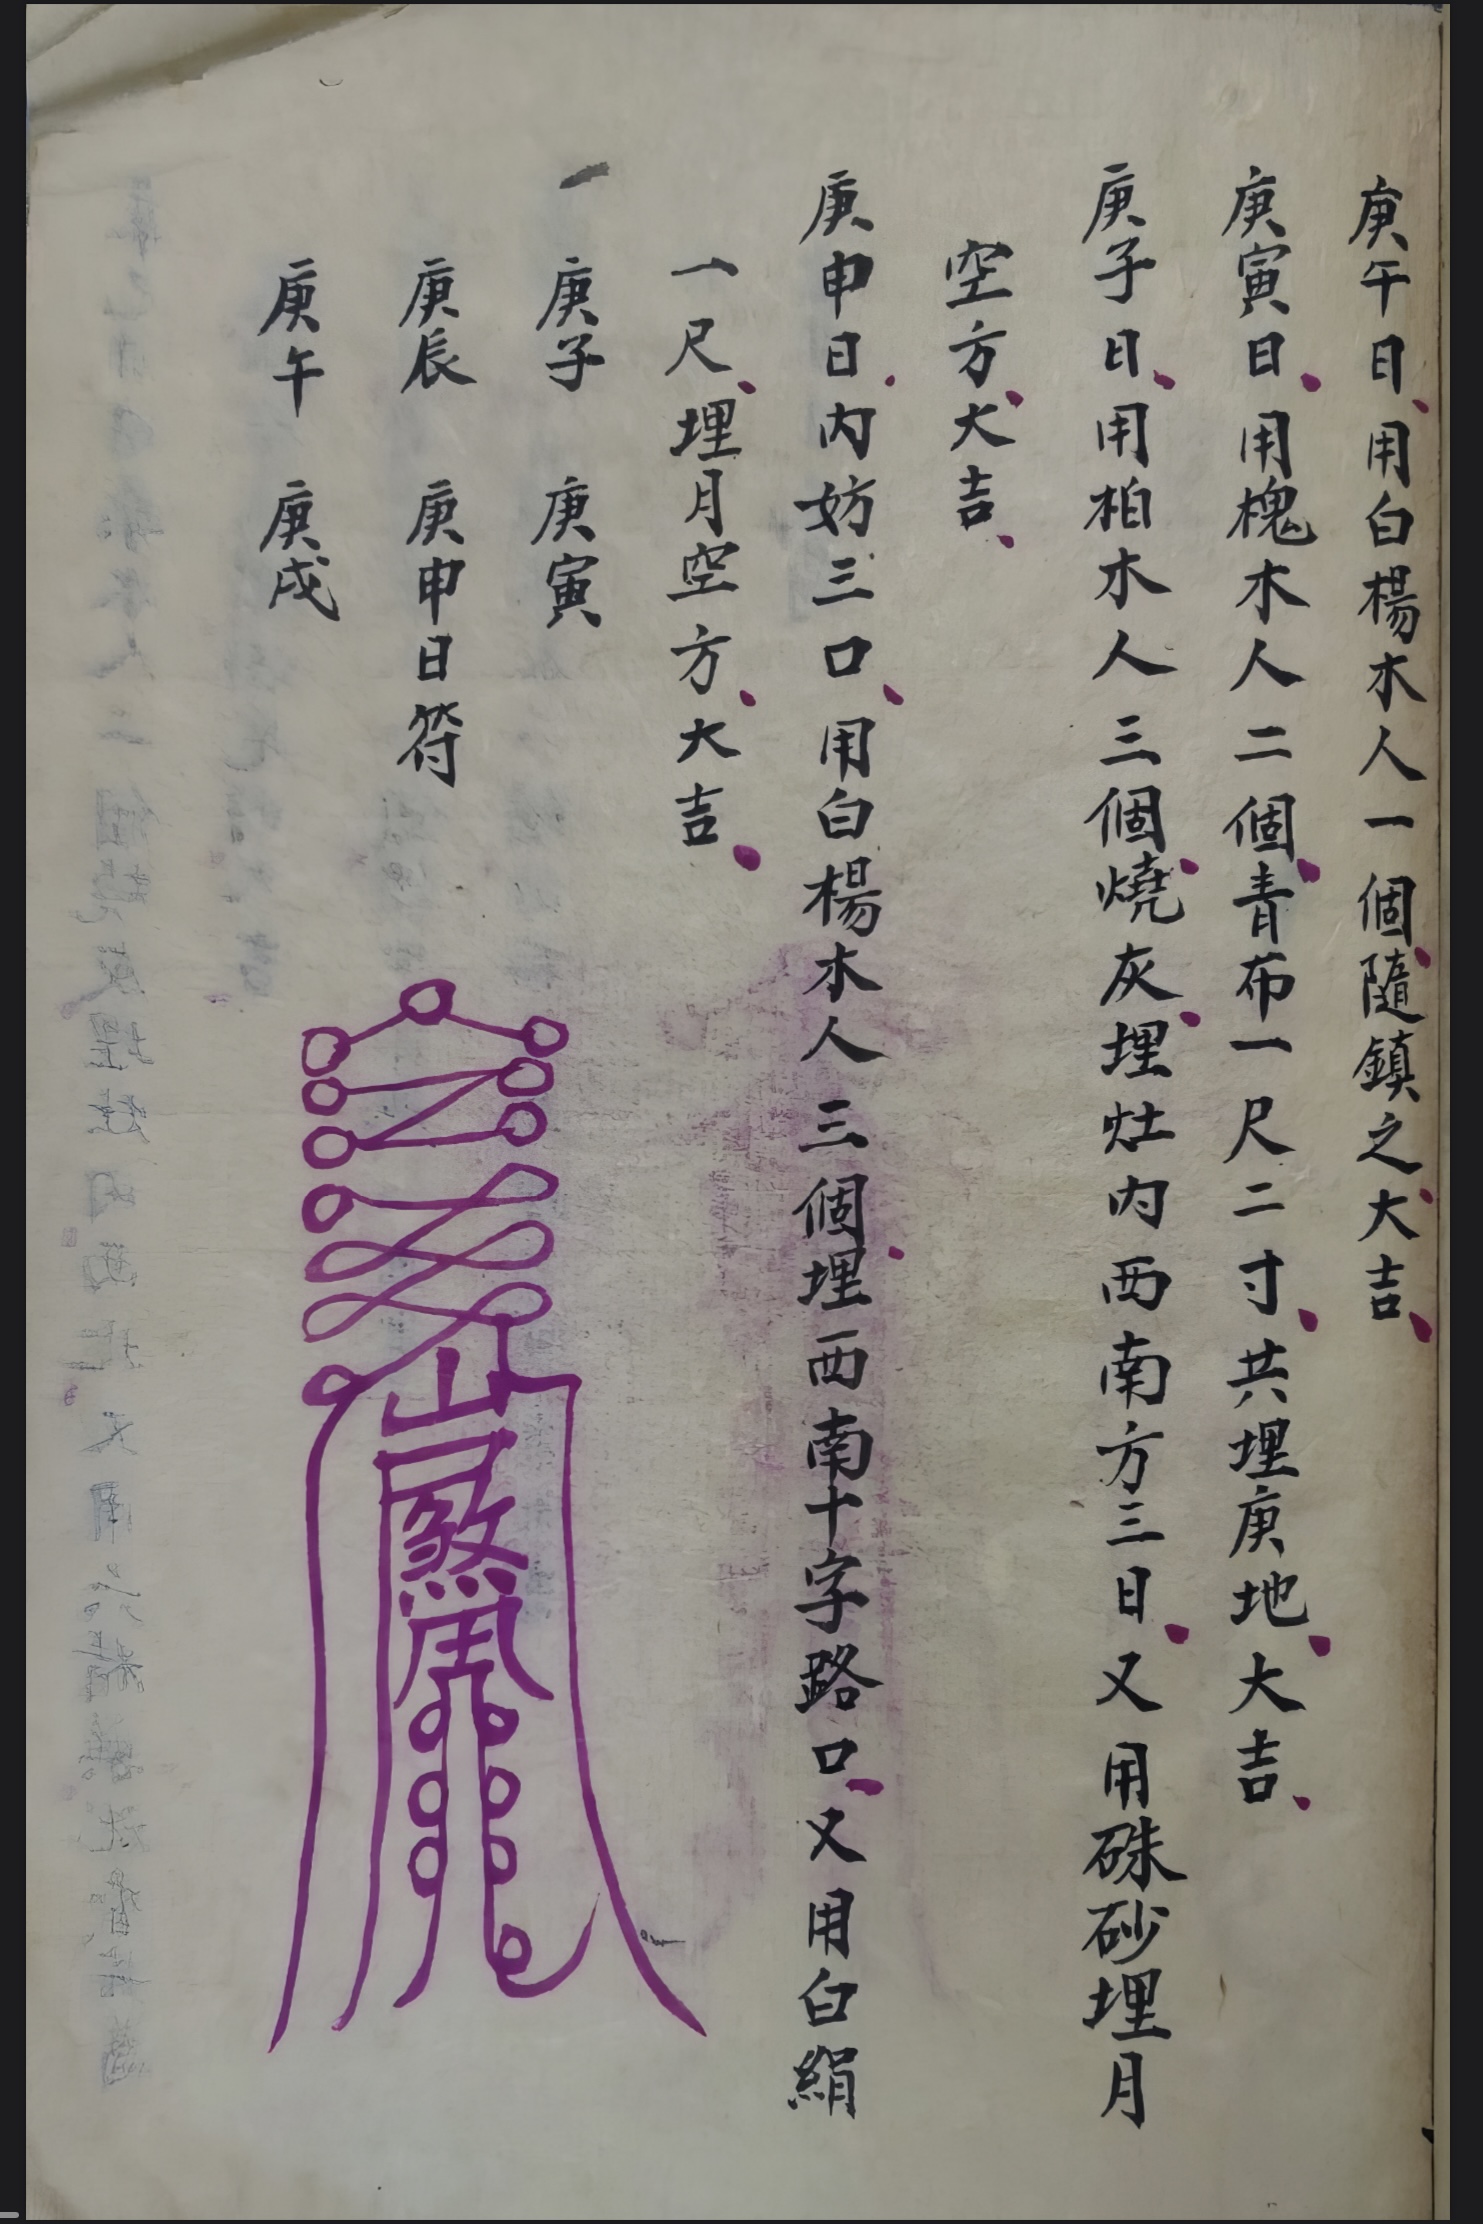 庚午日用白楊木人一個隨鎮之大吉
庚寅日用槐木人二個青布一尺二寸共埋庚地大吉
庚子日用柏木人三個燒灰埋灶内西南方三日又用硃砂埋月
空方大吉
庚申日内妨三口用白楊木人三個埋西南十字路口又用白絹
一尺埋月空方大吉
庚子 庚寅
庚辰 庚申日符
庚午 庚戌